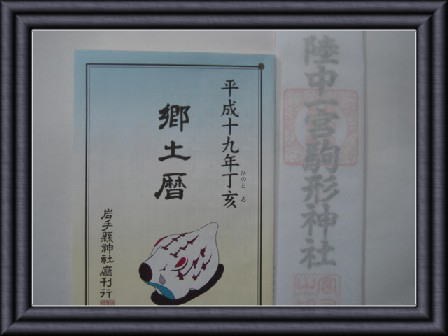 陸中一宮駒形神社
平成十九年丁亥
ひのと ゐ
郷土暦
岩手縣神社廳刊行